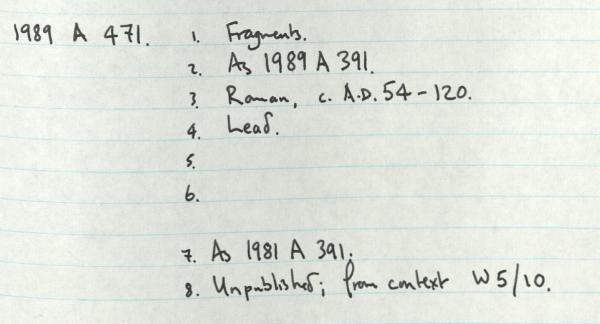 1989 A 471. 1. Fragments.
2. As 1989 A 391.
3. Roman, c. A.D. 54 - 120.
4. Lead.
5.
6.
7. As 1981 A 391.
8. Unpublished; from context W5/10.